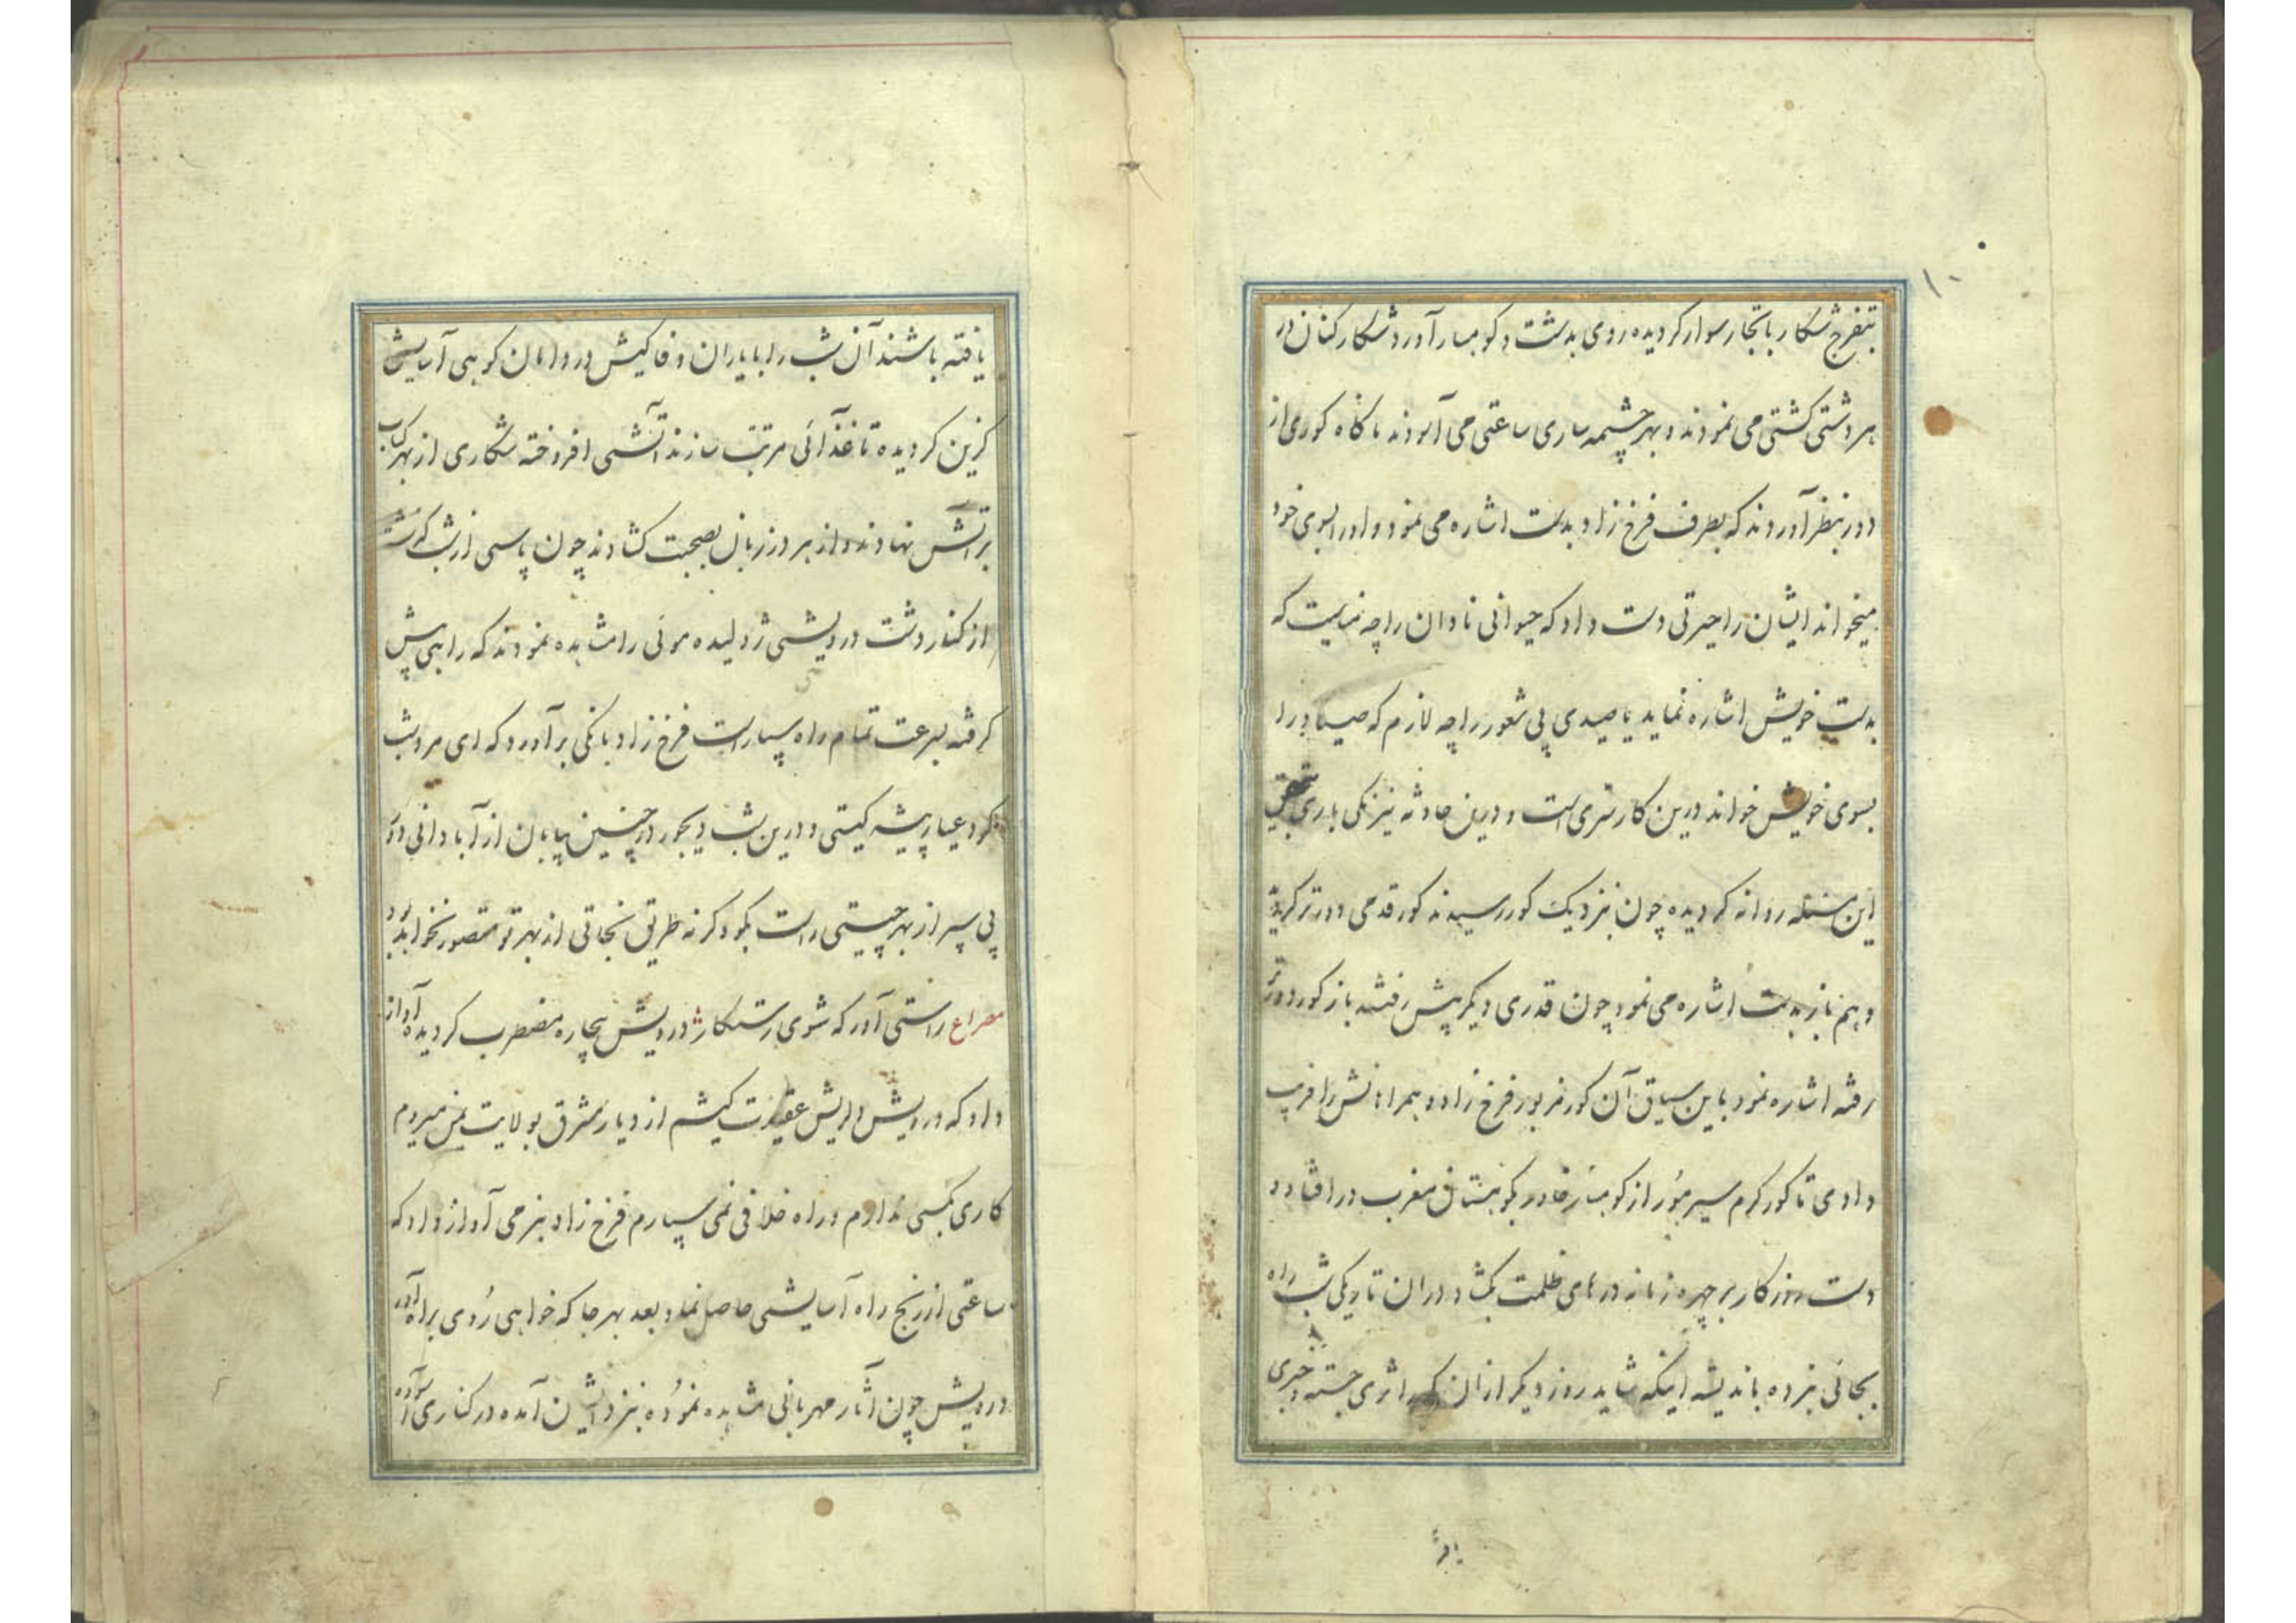 ۱۰
بتفرج شکار با تجار سوار کردیده روی بدشت و کوهسار آورد شکار کنان در
هر دشتی کشتی می نمودند و بهر چشمه ساری ساعتی می آسودند ناکاه کوری از
دور بنظر آوردند که بطرف فرخ زاد بدست اشاره می نمود و او را بسوی خود
میخواند ایشان را حیرتی دست داد که حیوانی نادان را چه نهایت که
بدست خویش اشاره نماید یا صیدی بی شعور را چه لازم که صیاد را
بسوی خویش خواند درین کار سری است و درین حادثه نیرنکی باری بتحقیق
این مسئله روانه کردیده چون بنزدیک کور رسیدند کور قدمی دورتر کردیده
و هم باز بدست اشاره می نمود چون قدری دیکر پیش رفتند باز کور دورتر
رفته اشاره نمود باین سیاق آن کور مزبور فرخ زاد و همراهانش را فریب
دادمی تا کور کرم سیر هور از کوهسار خاور بکوهستان مغرب در افتاد و
دست روزکار بر چهره زمانه درهای ظلمت بکشاد در ان تاریکی شب راه
بجائی نبرده باندیشه اینکه شاید روز دیکر از ان کور اثری جسته و خبری
یافته
یافته باشند آن شب را با یاران وفا کیش در دامان کوهی آسایش
کزین کردیده تا غذائی مرتب سازند آتشی افروخته شکاری از بهر کباب
بر آتش نهادند و از هر در زبان بصحبت کشادند چون پاسی از شب کذشت
از کنار دشت درویشی ژولیده موئی را مشاهده نمودند که راهی پیش
کرفته بسرعت تمام راه سپار است فرخ زاد بانکی برآورد که ای مرد شب
کرد عیار پیشه کیستی و درین شب دیجور در چنین بیابان از آبادانی دور
پی سپر از بهر چیستی راست بکو و کرنه طریق نجاتی از بهر تو متصور نخواهد بود
مصراع راستی آور که شوی رستکار درویش بیچاره مضطرب کردیده آواز
داد که درویش دلریش عقیدت کیشم از دیار مشرق بولایت یمن میروم
کاری بکسی ندارم و راه خلافی نمی سپارم فرخ زاد بنرمی آواز داد که
ساعتی از رنج راه آسایشی حاصل نما و بعد بهر جا که خواهی روی براه آور
درویش چون آثار مهربانی مشاهده نموده بنزد ایشان آمده در کناری